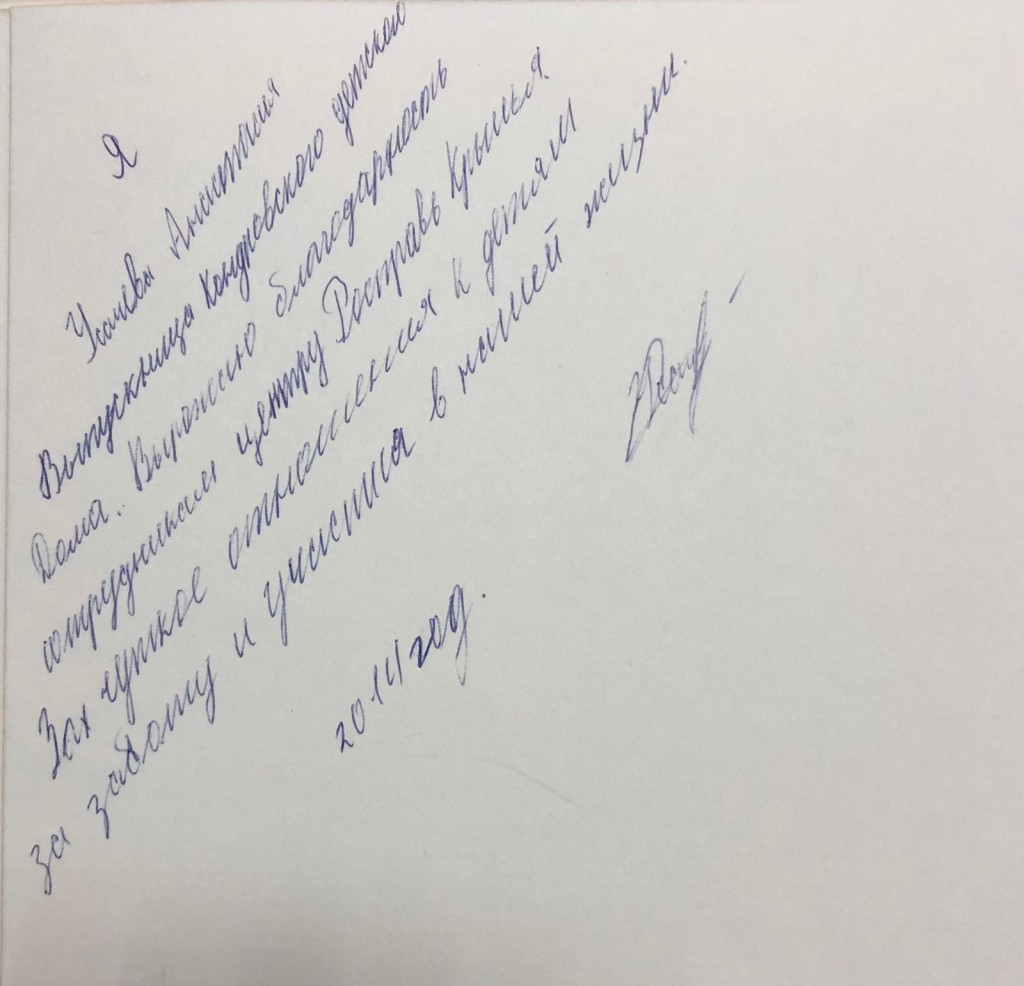 Я
Усачева Анастасия
Выпускница Кондровского детского
Дома. Выражаю благодарность
сотрудникам центру Расправь Крылья.
За чуткое отношения к детям
за заботу и участия в нашей жизни.
2014 год.